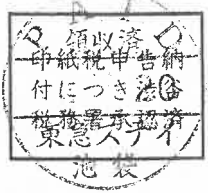 領収済
印紙税申告納
付につき渋谷
税務署承認済
東急ステイ
池袋